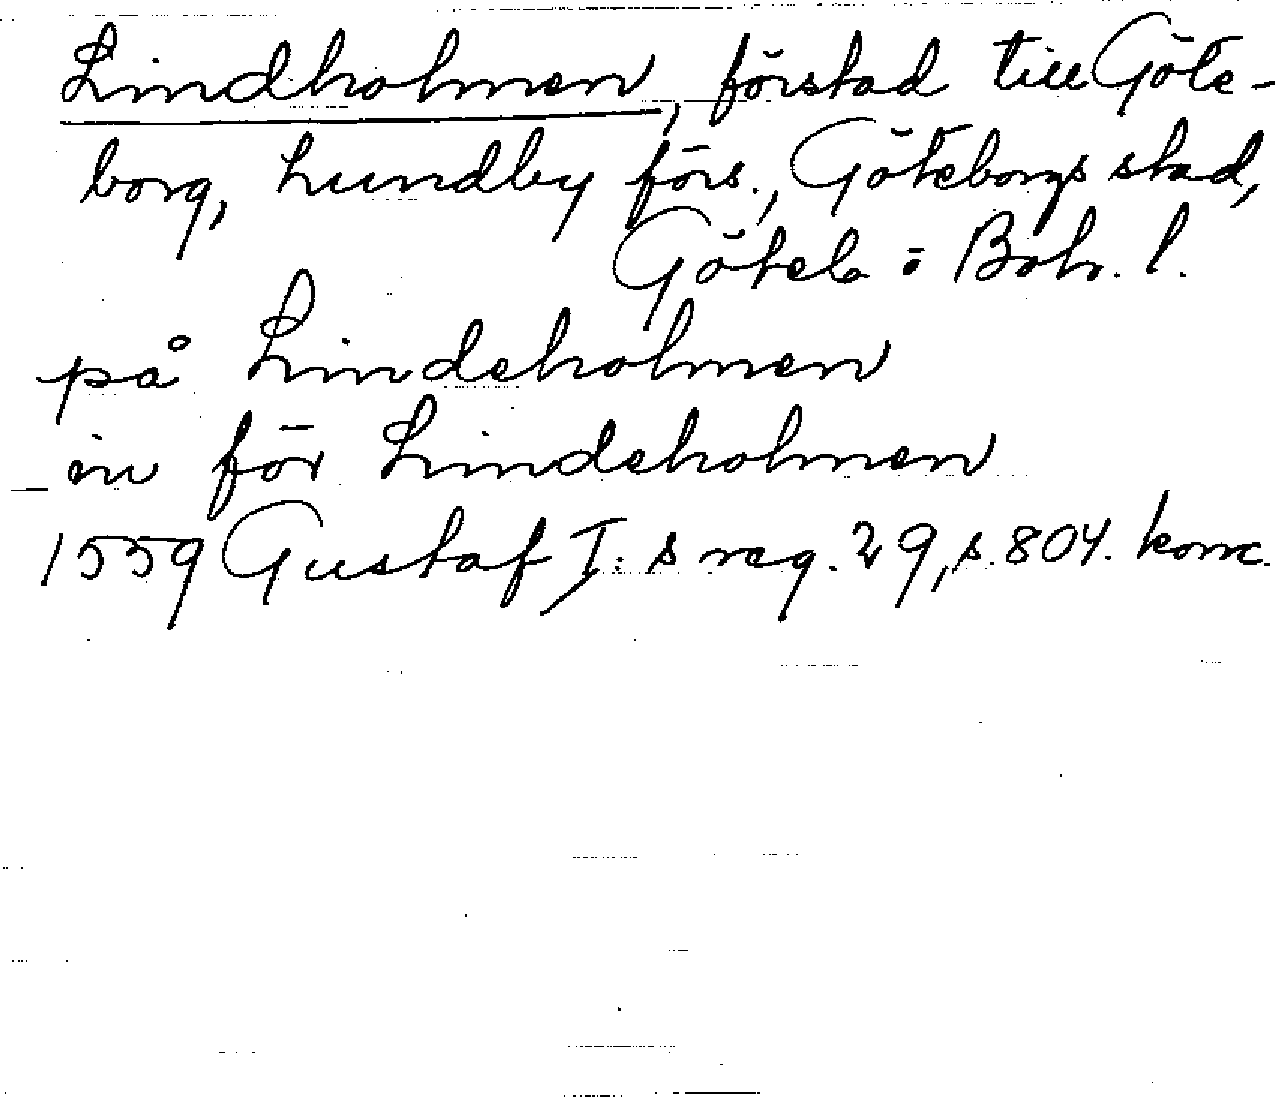 Lindholmen, förstad till Göte-
borg, Lundby förs., Göteborgs stad,
Göteb. o Boh. l.
på Lindeholmen
in för Lindeholmen
1559 Gustaf I:s reg. 29, s. 804. konc.